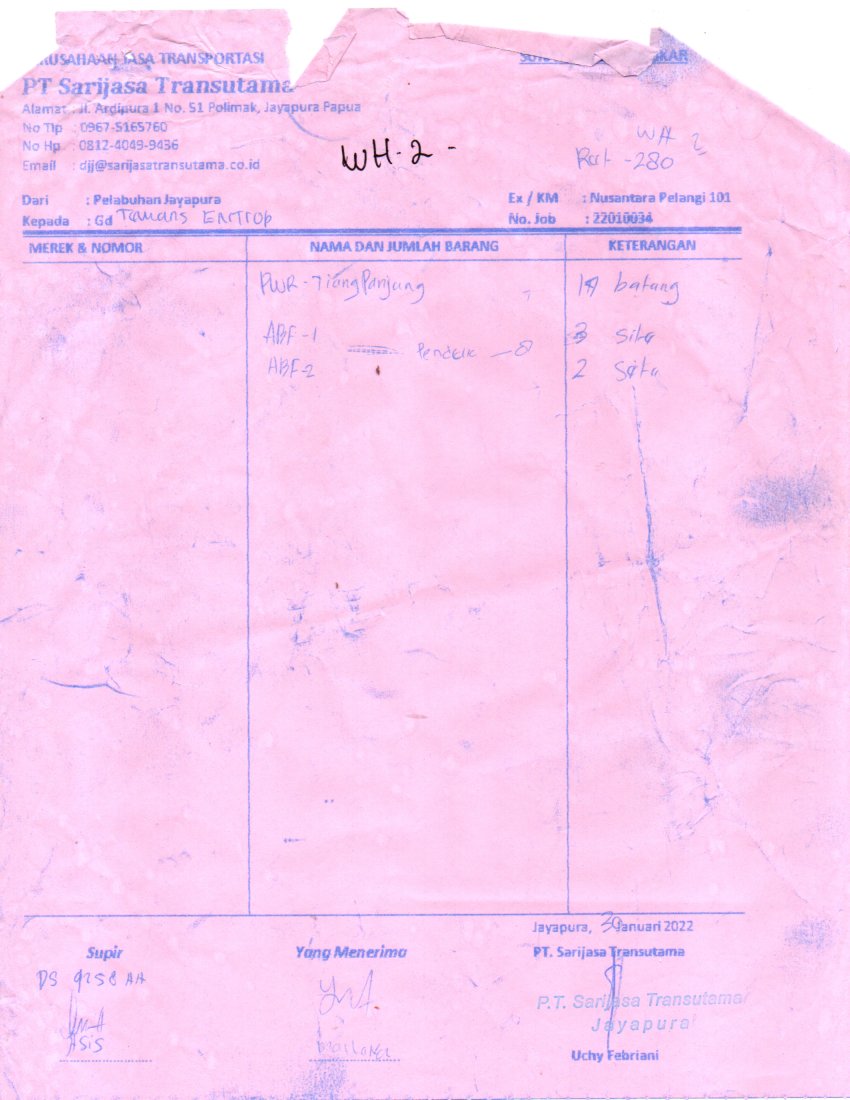 JASA TRANSPORTASI
PT Sarijasa Transutama
Alamat : Jl. Ardipura 1 No. 51 Polimak, Jayapura Papua
No Tlp : 0967-5165760
No Hp : 0812-4049-9436
Email : djj@sarijasatransutama.co.id
WH-2 -
WH 2
-280
Dari : Pelabuhan Jayapura
Ex / KM : Nusantara Pelangi 101
Kepada : Gd
No. Job : 22010034
MEREK & NOMOR NAMA DAN JUMLAH BARANG KETERANGAN
PWR - Tiang Panjang batang
ABF-1 3
Pendek
ABF-2 2
Jayapura, Januari 2022
Supir Yang Menerima PT. Sarijasa Transutama
DS 9258 AA
P.T. Sarijasa Transutama
Jayapura
ASIS
Uchy Febriani